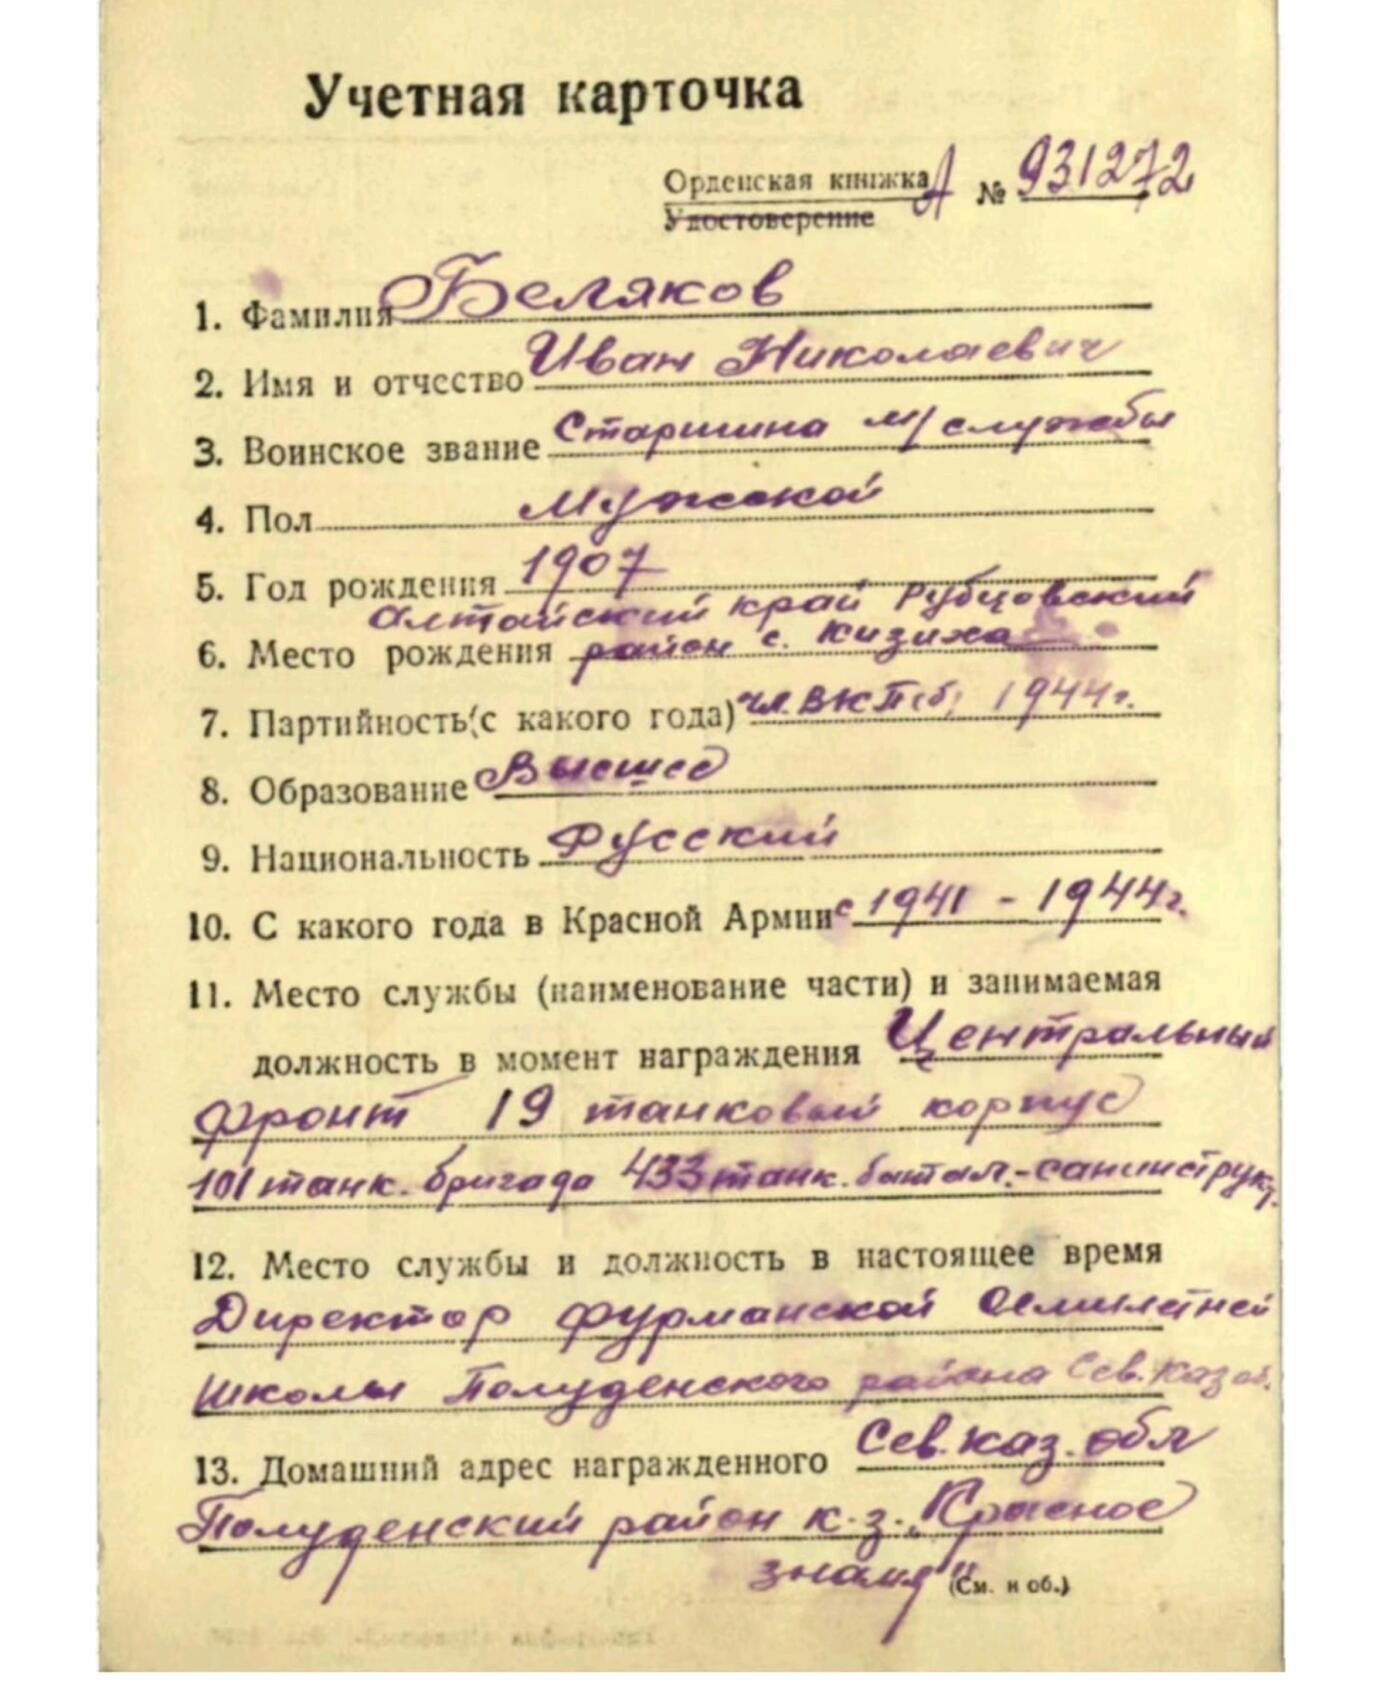 Учетная карточка
Орденская книжка А № 931272
Удостоверение
1. Фамилия Беляков
2. Имя и отчество Иван Николаевич
3. Воинское звание Старшина м/службы
4. Пол Мужской
5. Год рождения 1907
Алтайский край Рубцовский
6. Место рождения район с. Кизиха
7. Партийность (с какого года) чл. ВКП(б) 1944 г.
8. Образование Высшее
9. Национальность Русский
10. С какого года в Красной Армии с 1941 - 1944 г.
11. Место службы (наименование части) и занимаемая
должность в момент награждения Центральный
фронт 19 танковый корпус
101 танк. бригада 433 танк. батал. - санинструк.
12. Место службы и должность в настоящее время
Директор Фурманской Семилетней
школы Полуденского района Сев. Каз об.
13. Домашний адрес награжденного Сев. каз. обл
Полуденский район к-з. „Красное
знамя"
(См. н об.)